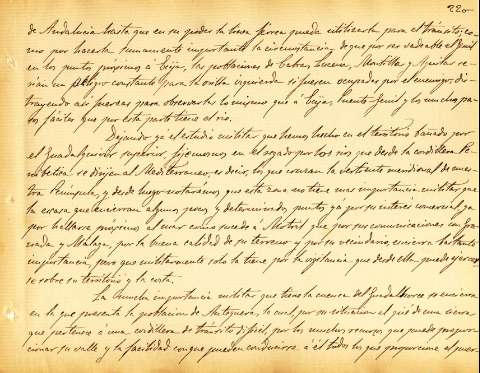 220
de Andalucia hasta que en su poder la línea férrea pueda utilizarla para el tránsito, co-
mo por hacerla sumamente importante la circunstancia de que por ser vadeable el Genil
en los puntos próximos á Ecija, las poblaciones de Cabra, Lucena, Montilla y Aguilar se-
rían un peligro constante para la orilla izquierda si fuesen ocupadas por el enemigo, dis-
trayendo así fuerzas para observarlas lo mismo que á Ecija, Puente Genil y los muchos pa-
sos faciles que por esta parte tiene el rio.
Dejando ya el estudio militar que hemos hecho en el territorio bañado por
el Guadalquivir superior, fijemonos en el regado por los rios que desde la cordillera Pe-
nibetica se dirijen al Mediterraneo, es decir, los que cruzan la vertiente meridional de nues-
tra Peninsula, y desde luego notaremos que esta zona no tiene mas importancia militar, que
la escasa que encierran algunos pocos y determinados puntos ya por su interés comercial, ya
por hallarse próximos al mar como sucede á Motril que por sus comunicaciones con Gra-
nada y Malaga, por la buena calidad de su terreno y por su vecindario, encierra bastante
importancia, pero que militarmente solo la tiene por la vigilancia que desde ella puede ejercer-
se sobre su territorio y la costa.
La mucha importancia militar que tiene la cuenca del Guadalhorce se encierra
en la que presenta la poblacion de Antequera, la cual por su situacion al pié de una sierra
que pertenece á una cordillera de tránsito dificil, por los muchos recursos que puede propor-
cionar su valle y la facilidad con que pueden conducirse á él todos los que proporcione el puer-